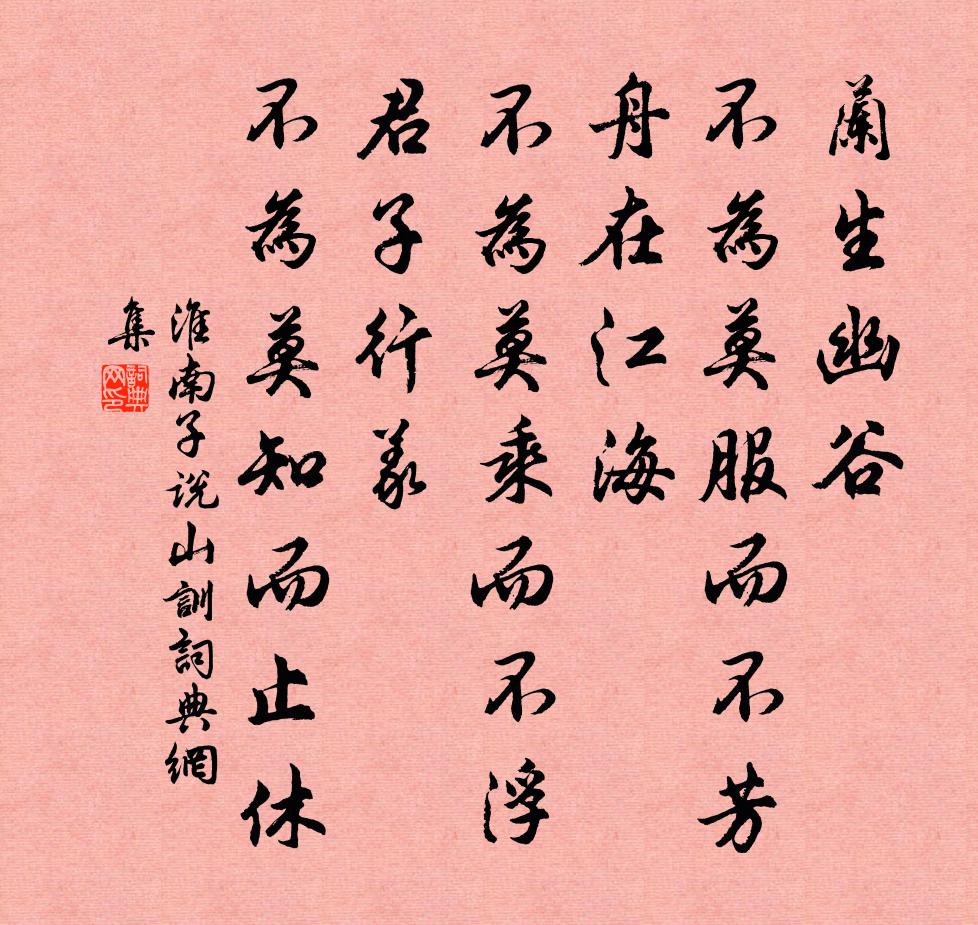 蘭生幽谷
不為莫服而不芳
舟在江海
不為莫乘而不浮
君子行義
不為莫知而止休
淮南子說山訓詞典網
集
詞典
网印